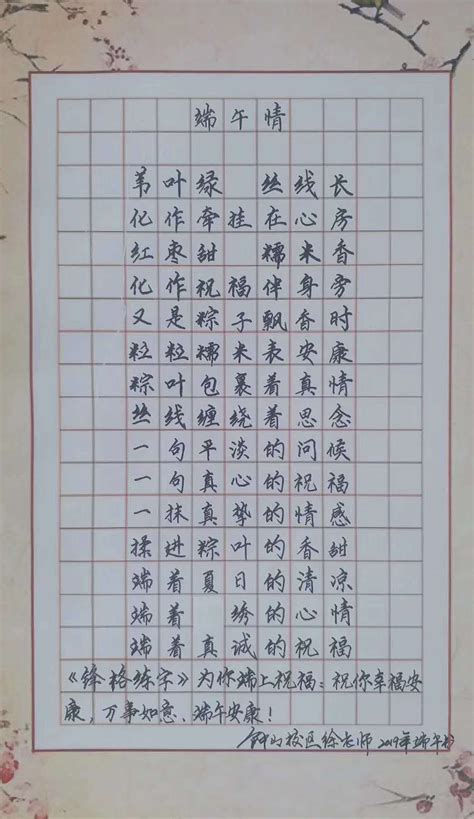 端午情
苇叶绿 丝线长
化作牵挂在心房
红枣甜 糯米香
化作祝福伴身旁
又是粽子飘香时
粒粒糯米表安康
粽叶包裹着真情
丝线缠绕着思念
一句平淡的问候
一句真心的祝福
一抹真挚的情感
揉进粽叶的香甜
端着夏日的清凉
端着 绣的心情
端着真诚的祝福
《锋格练字》为你端上祝福：祝你幸福安
康，万事如意、端午安康！
钟山校区徐老师 2019年端午